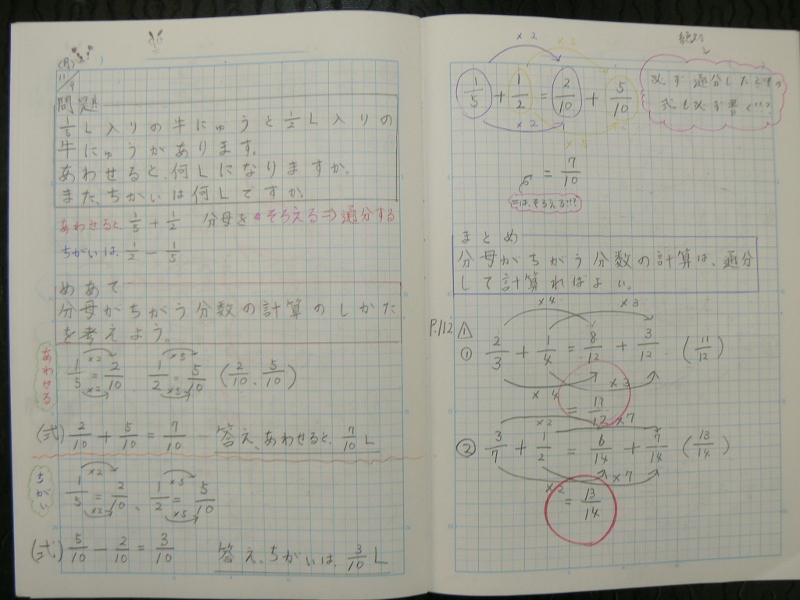 (月)
11/9
問題
1/5L入りの牛にゅうと1/2L入りの
牛にゅうがあります。
あわせると、何Lになりますか。
また、ちがいは何Lですか。
あわせると、1/5 + 1/2 分母をそろえる⇒通分する
ちがいは、1/2 − 1/5
めあて
分母がちがう分数の計算のしかた
を考えよう。
あわせる
×2 ×5
1/5 = 2/10、1/2 = 5/10 (2/10、5/10)
×2 ×5
(式) 2/10 + 5/10 = 7/10 答え、あわせると、7/10 L
ちがい
×2 ×5
1/5 = 2/10、1/2 = 5/10
×2 ×5
(式) 5/10 − 2/10 = 3/10 答え、ちがいは、3/10 L
×2 ×5
1/5 + 1/2 = 2/10 + 5/10
×2 ×5
必ず通分したときの
式も必ず書く
= 7/10
=は、そろえる!!
まとめ
分母がちがう分数の計算は、通分
して計算ればよい。
P.112 1
×4 ×3
① 2/3 + 1/4 = 8/12 + 3/12 (11/12)
×4 ×3
= 11/12
×2 ×7
② 3/7 + 1/2 = 6/14 + 7/14 (13/14)
×2 ×7
= 13/14